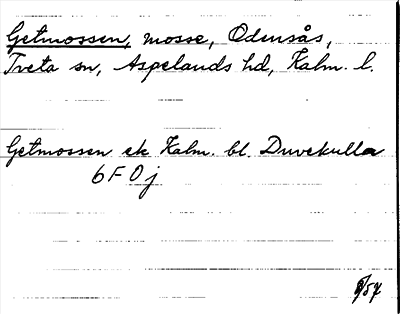 Getmossen, mosse, Odensås,
Tveta sn, Aspelands hd, Kalm. l.
Getmossen ek Kalm. bl. Duvekulla
6 F 0 j
/57